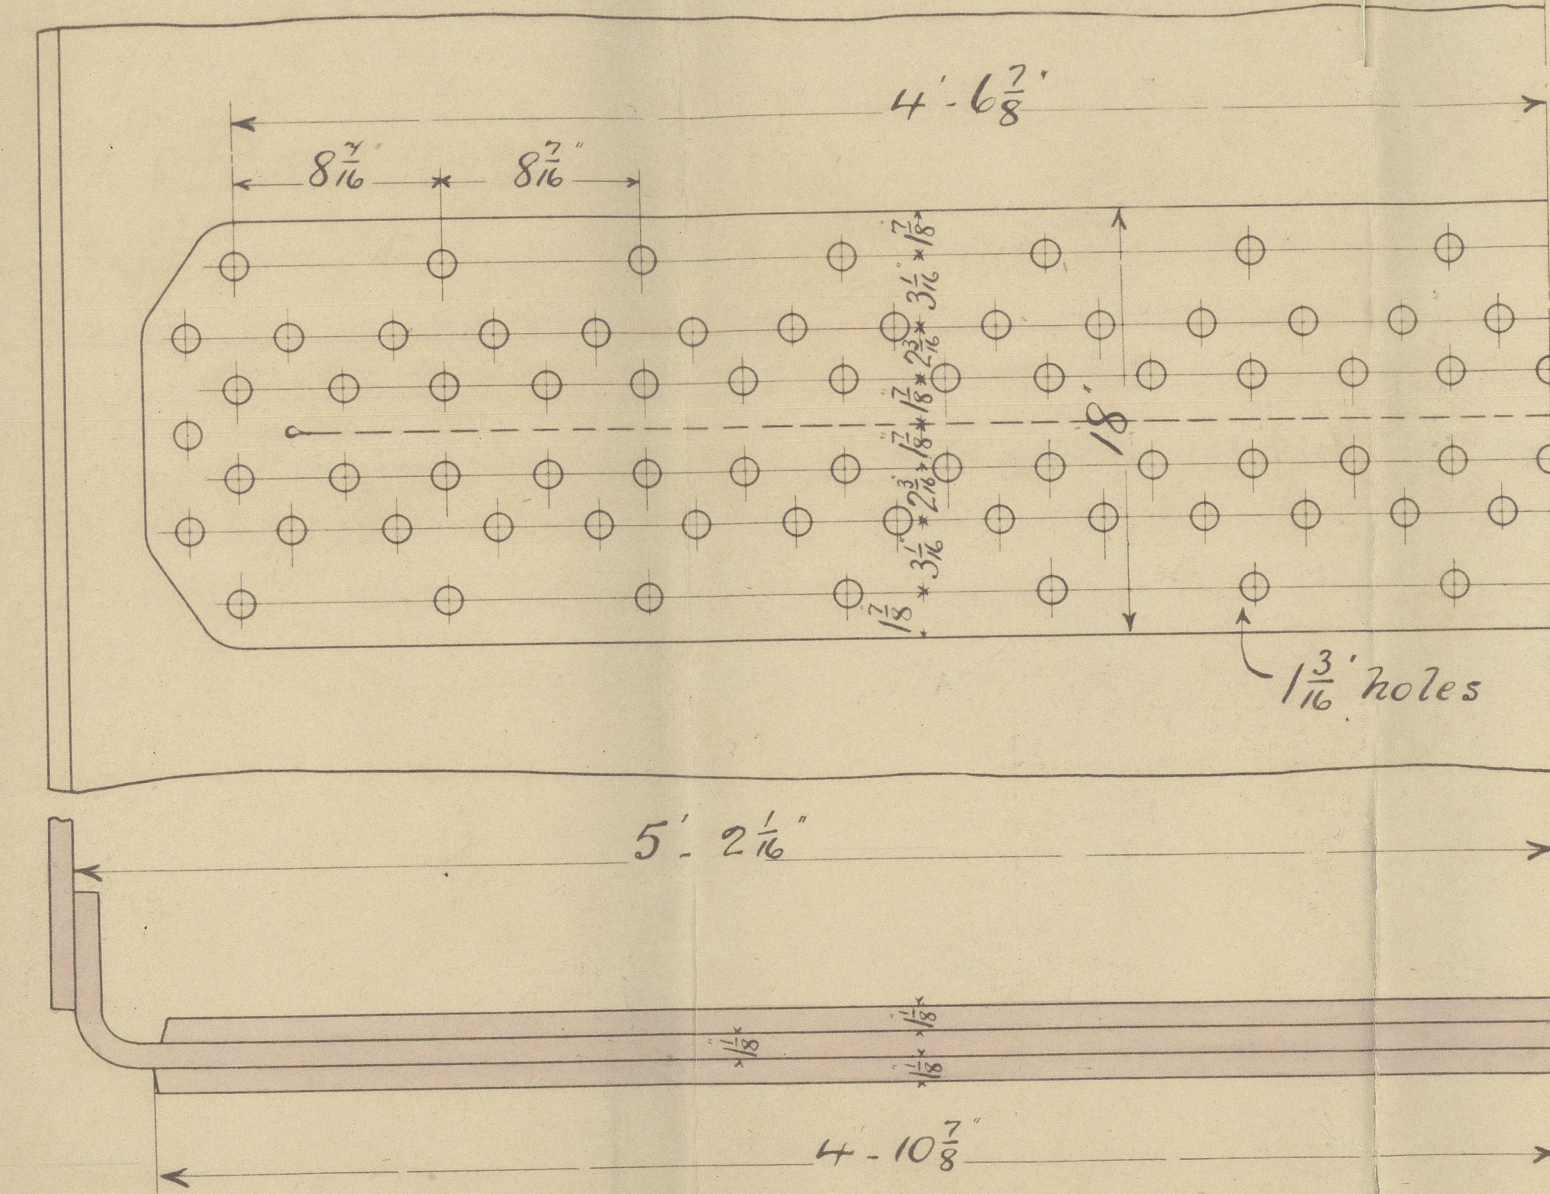 4' - 6 7/8"
8 7/16" 8 7/16"
1 7/8"
3 1/16"
2 3/16"
1 7/8"
1 7/8"
2 3/16"
3 1/16"
1 7/8"
18"
1 3/16" holes
5' - 2 1/16"
1 1/8"
1 1/8"
1 1/8"
4 - 10 7/8"